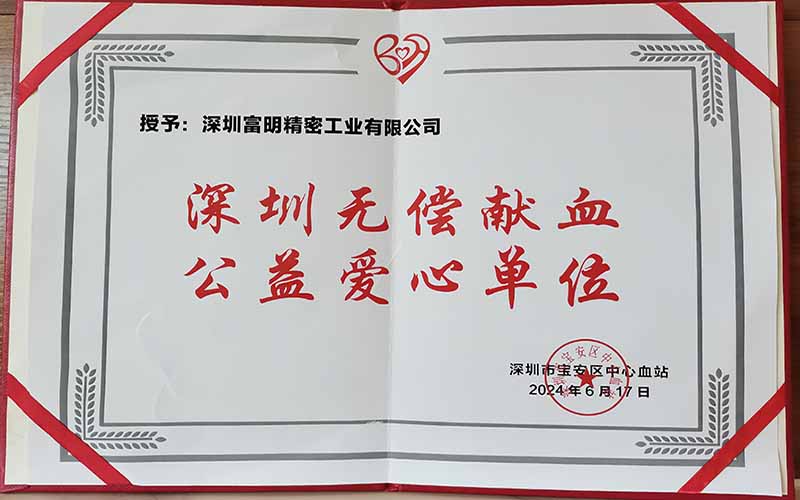 授予：深圳富明精密工业有限公司
深圳无偿献血
公益爱心单位
深圳市宝安区中心血站
2024年6月17日